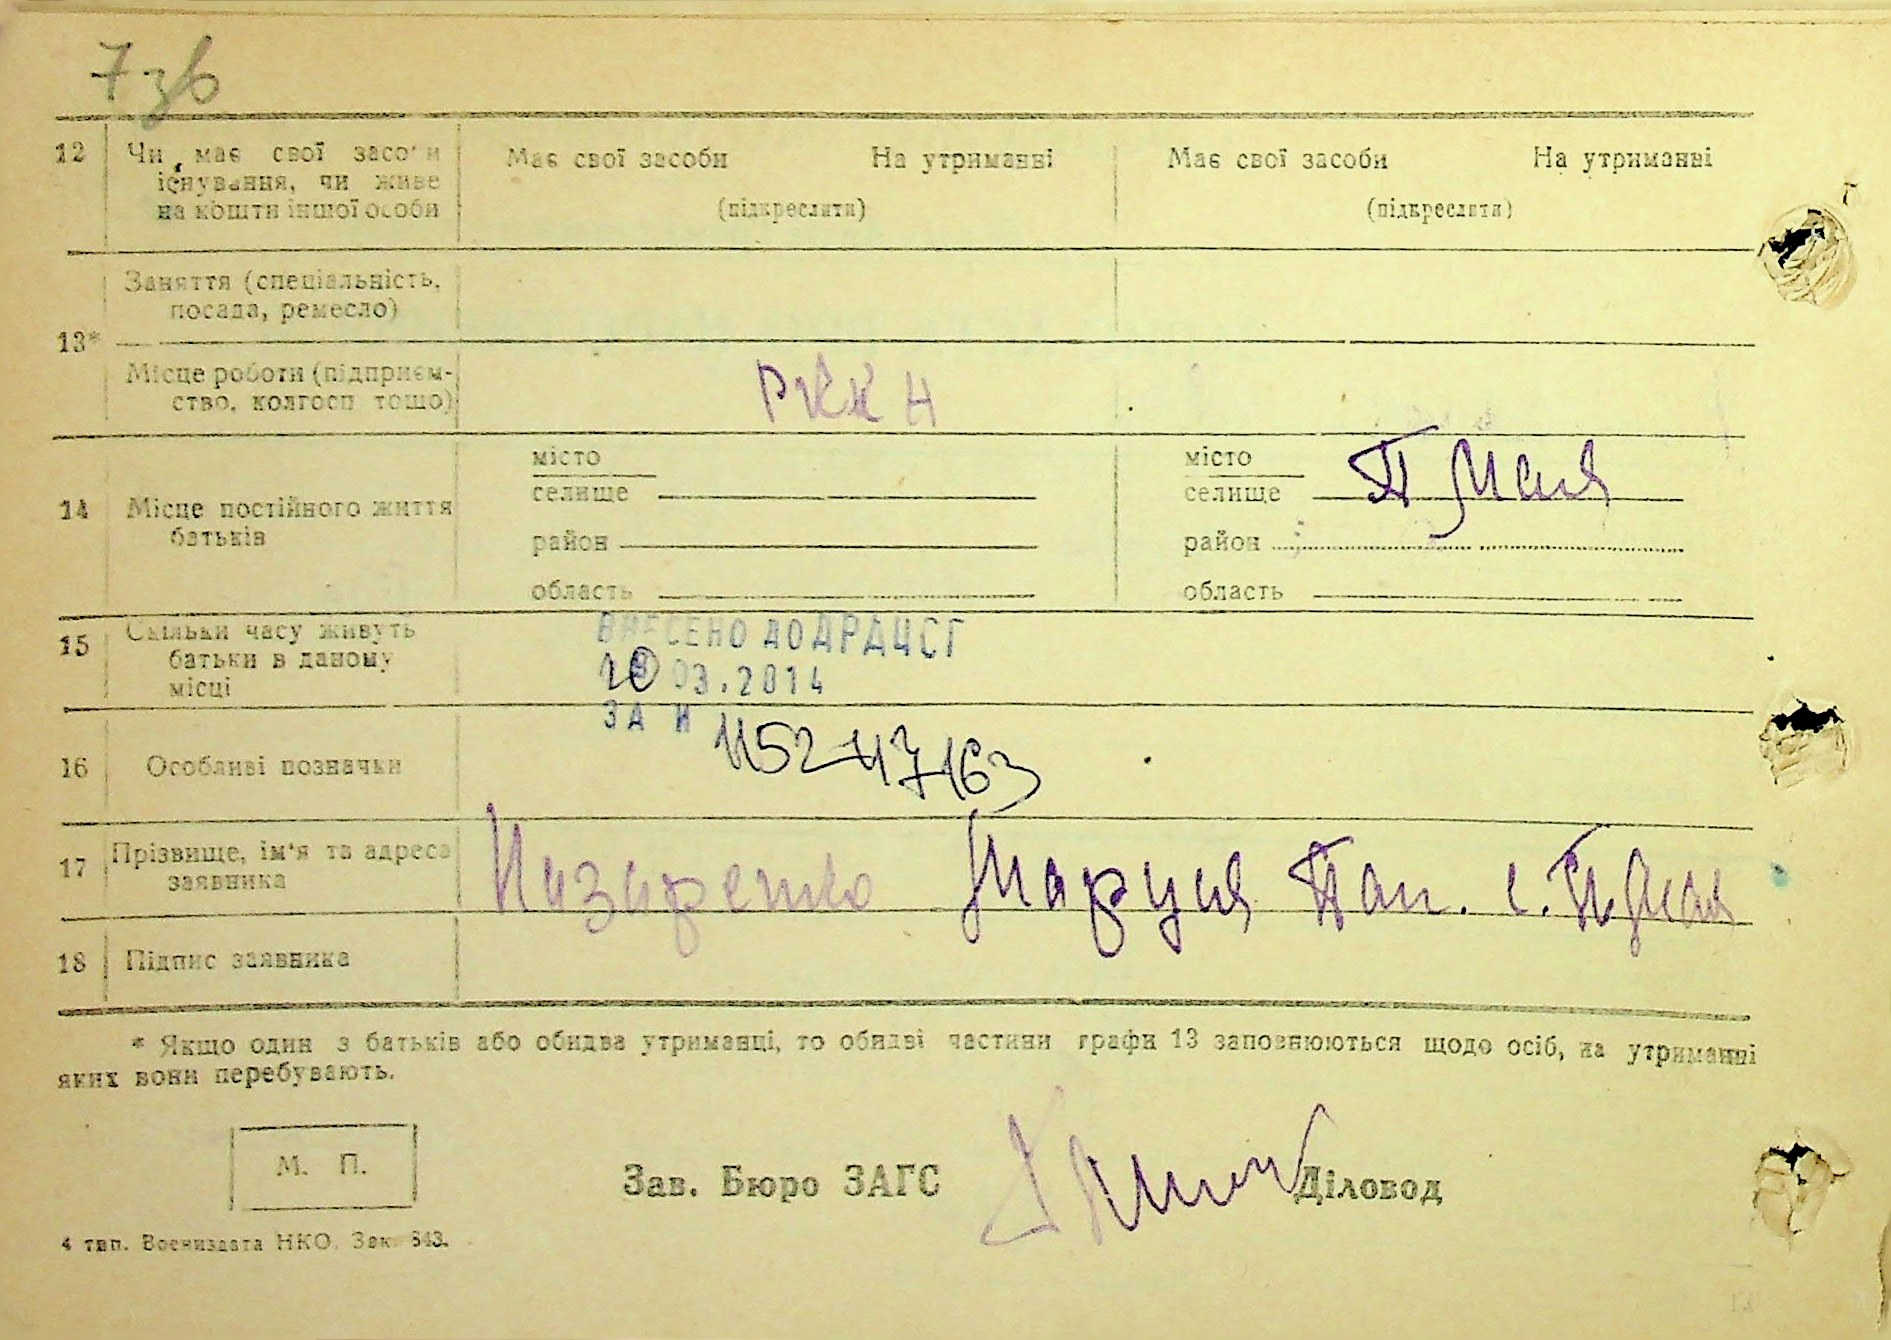 7 зв
12 Чи має свої засоби Має свої засоби На утриманні Має свої засоби На утриманні
існування, чи живе
на кошти іншої особи (підкреслити) (підкреслити)
Заняття (спеціальність,
посада, ремесло)
13*
Місце роботи (підприєм-
ство, колгосп тощо) РККА
місто місто
селище селище
14 Місце постійного життя
батьків
район район
область область
15 Скільки часу живуть
батьки в даному
місці
ВНЕСЕНО ДО ДРАЦСГ
03.2014
ЗА №
16 Особливі позначки
17 Прізвище, ім'я та адреса
заявника
Назаренко Маруся Пан. с.
18 Підпис заявника
* Якщо один з батьків або обидва утриманці, то обидві частини графи 13 заповнюються щодо осіб, на утриманні
яких вони перебувають.
М. П.
Зав. Бюро ЗАГС Діловод
4 тип. Воениздата НКО. Зак. 843.